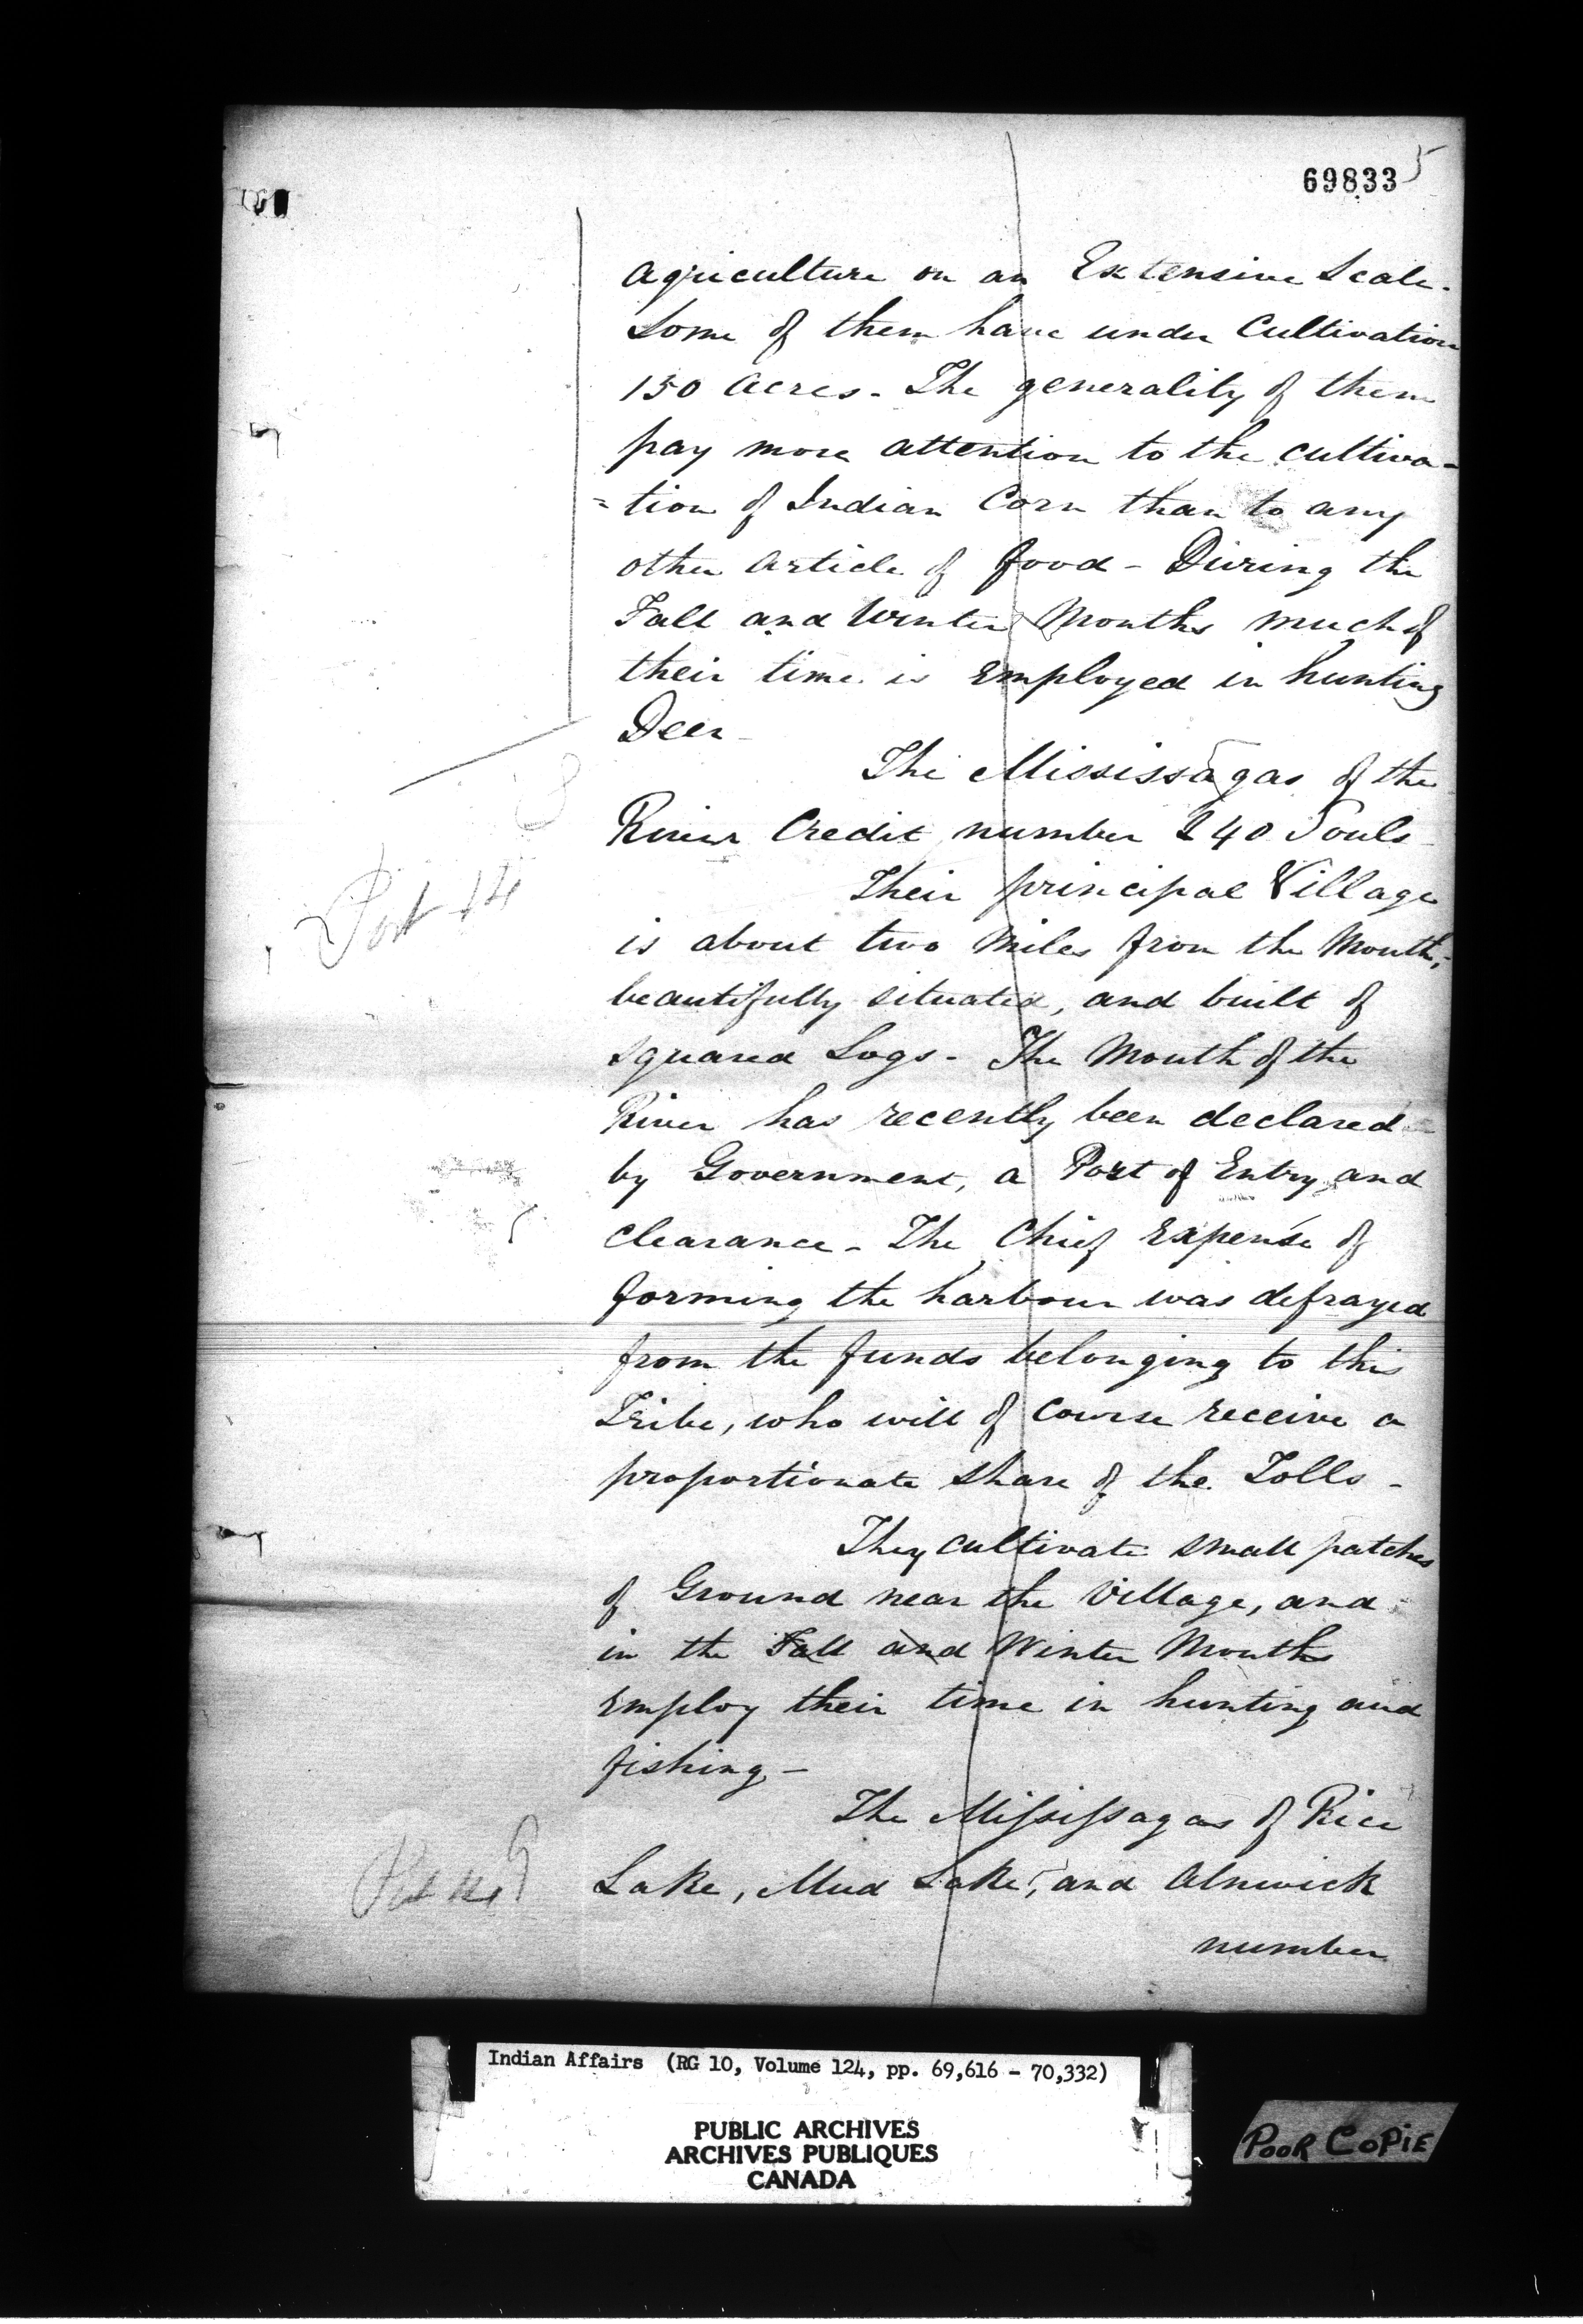 69833
5
Agriculture on an Extensive Scale.
Some of them have under Cultivation
150 Acres - The generality of them
pay more attention to the cultiva-
=tion of Indian Corn than to any
other Article of food - During the
Fall and Winter Months much of
their time is Employed in hunting
Deer -
The Mississagas of the
River Credit number 240 Souls
Their principal Village
is about two Miles from the Mouth,
beautifully situated, and built of
squared Logs - The Mouth of the
River has recently been declared
by Government, a Port of Entry and
Clearance - The Chief Expense of
forming the harbour was defrayed
from the funds belonging to this
Tribe, who will of Course receive a
proportionate share of the Tolls -
They cultivate small patches
of Ground near the Village, and
in the Fall and Winter Months
Employ their time in hunting and
fishing -
The Mississagas of Rice
Lake, Mud Lake, and Alnwick
number
Indian Affairs (RG 10, Volume 124, pp. 69,616 - 70,332)
PUBLIC ARCHIVES
ARCHIVES PUBLIQUES
CANADA
POOR COPIE